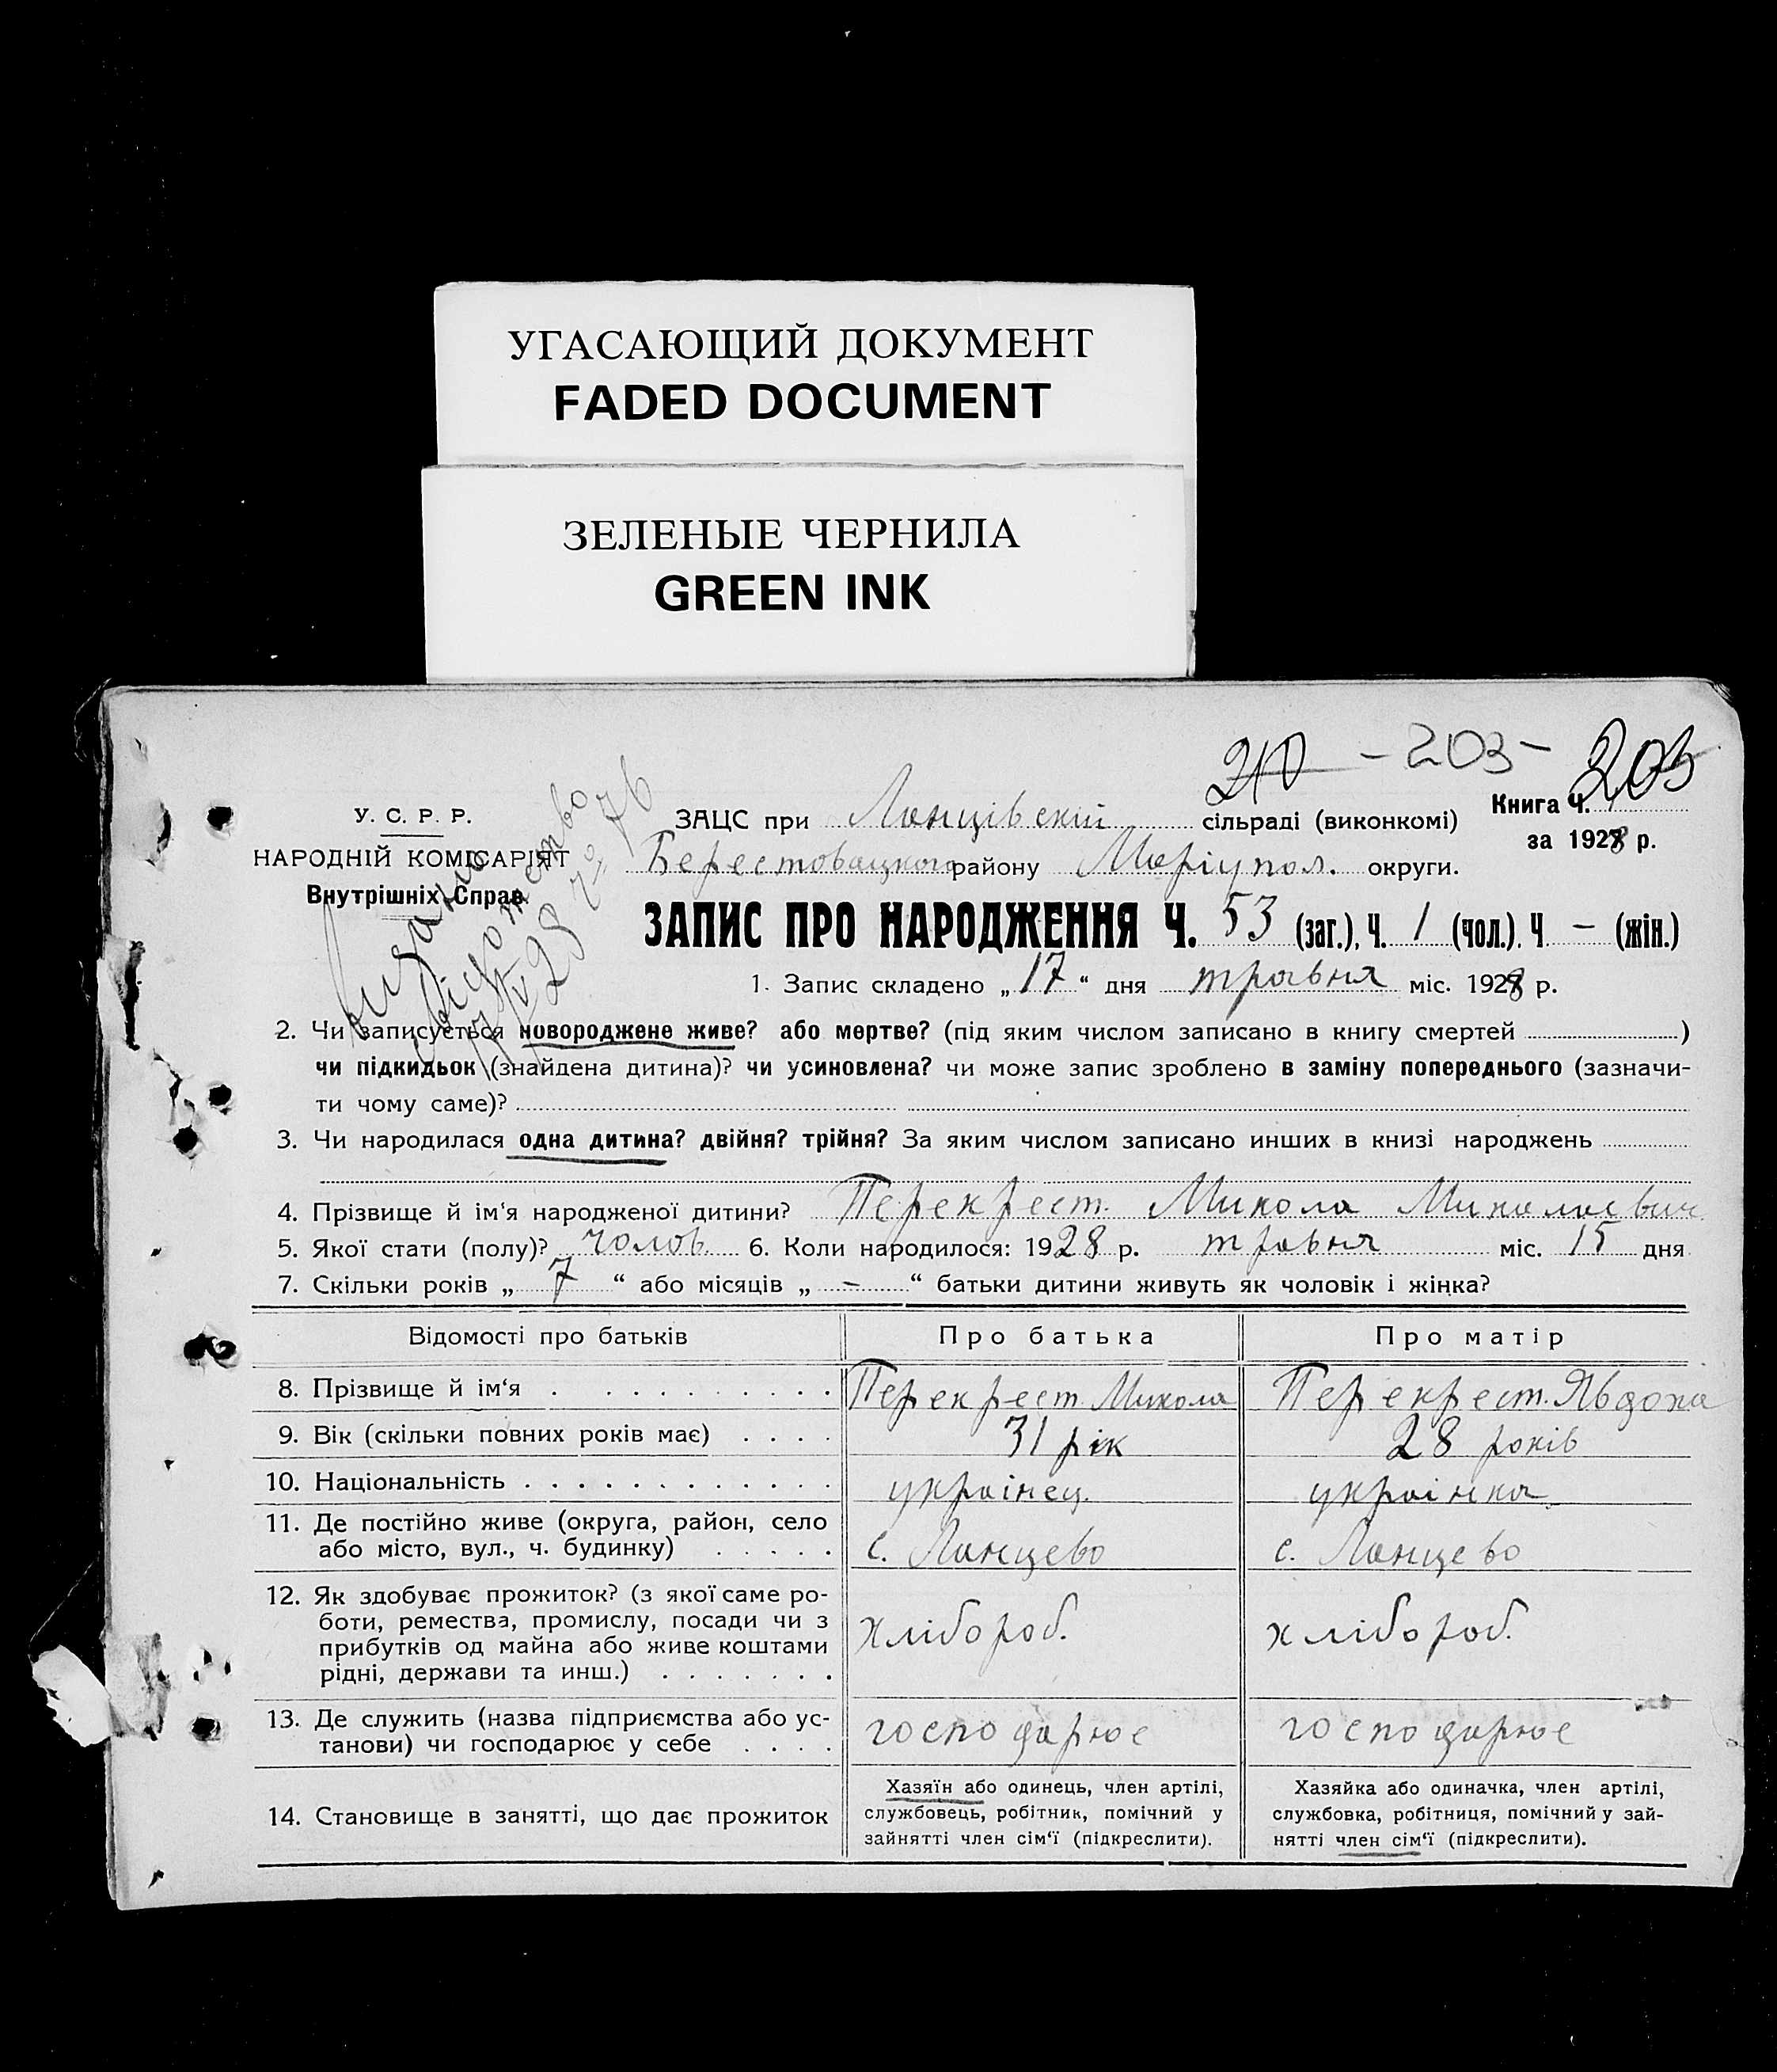 УГАСАЮЩИЙ ДОКУМЕНТ
FADED DOCUMENT
ЗЕЛЕНЫЕ ЧЕРНИЛА
GREEN INK
210 - 203 - 203
У. С. Р. Р.
НАРОДНІЙ КОМІСАРІЯТ
Внутрішніх Справ.
Видано
свідоцтво
17/V 28 р. № 76
ЗАЦС при Ланцівскій сільраді (виконкомі) Книга Ч.
за 1928 р.
Берестовацкого району Маріупол. округи.
ЗАПИС ПРО НАРОДЖЕННЯ Ч. 53 (заг.), Ч. 1 (чол.). Ч — (жін.)
1. Запис складено „ 17 “ дня травня міс. 1928 р.
2. Чи записується новороджене живе? або мертве? (під яким числом записано в книгу смертей )
чи підкидьок (знайдена дитина)? чи усиновлена? чи може запис зроблено в заміну попереднього (зазначи-
ти чому саме)?
3. Чи народилася одна дитина? двійня? трійня? За яким числом записано инших в книзі народжень
4. Прізвище й ім‘я народженої дитини? Перекрест. Микола Миколаєвич
5. Якої стати (полу)? чолов. 6. Коли народилося: 1928 р. травня міс. 15 дня
7. Скільки років „ 7 “ або місяців „ — “ батьки дитини живуть як чоловік і жінка?
Відомості про батьків Про батька Про матір
8. Прізвище й ім‘я . . . . . . . . . . . Перекрест Микола Перекрест. Явдоха
9. Вік (скільки повних років має) . . . . 31 рік 28 років
10. Національність . . . . . . . . . . . . украінец. украінка
11. Де постійно живе (округа, район, село
або місто, вул., ч. будинку) . . . . . с. Ланцево с. Ланцево
12. Як здобуває прожиток? (з якої саме ро-
боти, ремества, промислу, посади чи з
прибутків од майна або живе коштами
рідні, держави та инш.) . . . . . . . хлібороб. хлібороб.
13. Де служить (назва підприємства або ус-
танови) чи господарює у себе . . . . господарює господарює
14. Становище в занятті, що дає прожиток
Хазяїн або одинець, член артілі,
службовець, робітник, помічний у
зайнятті член сім‘ї (підкреслити).
Хазяйка або одиначка, член артілі,
службовка, робітниця, помічний у зай-
нятті член сім‘ї (підкреслити).